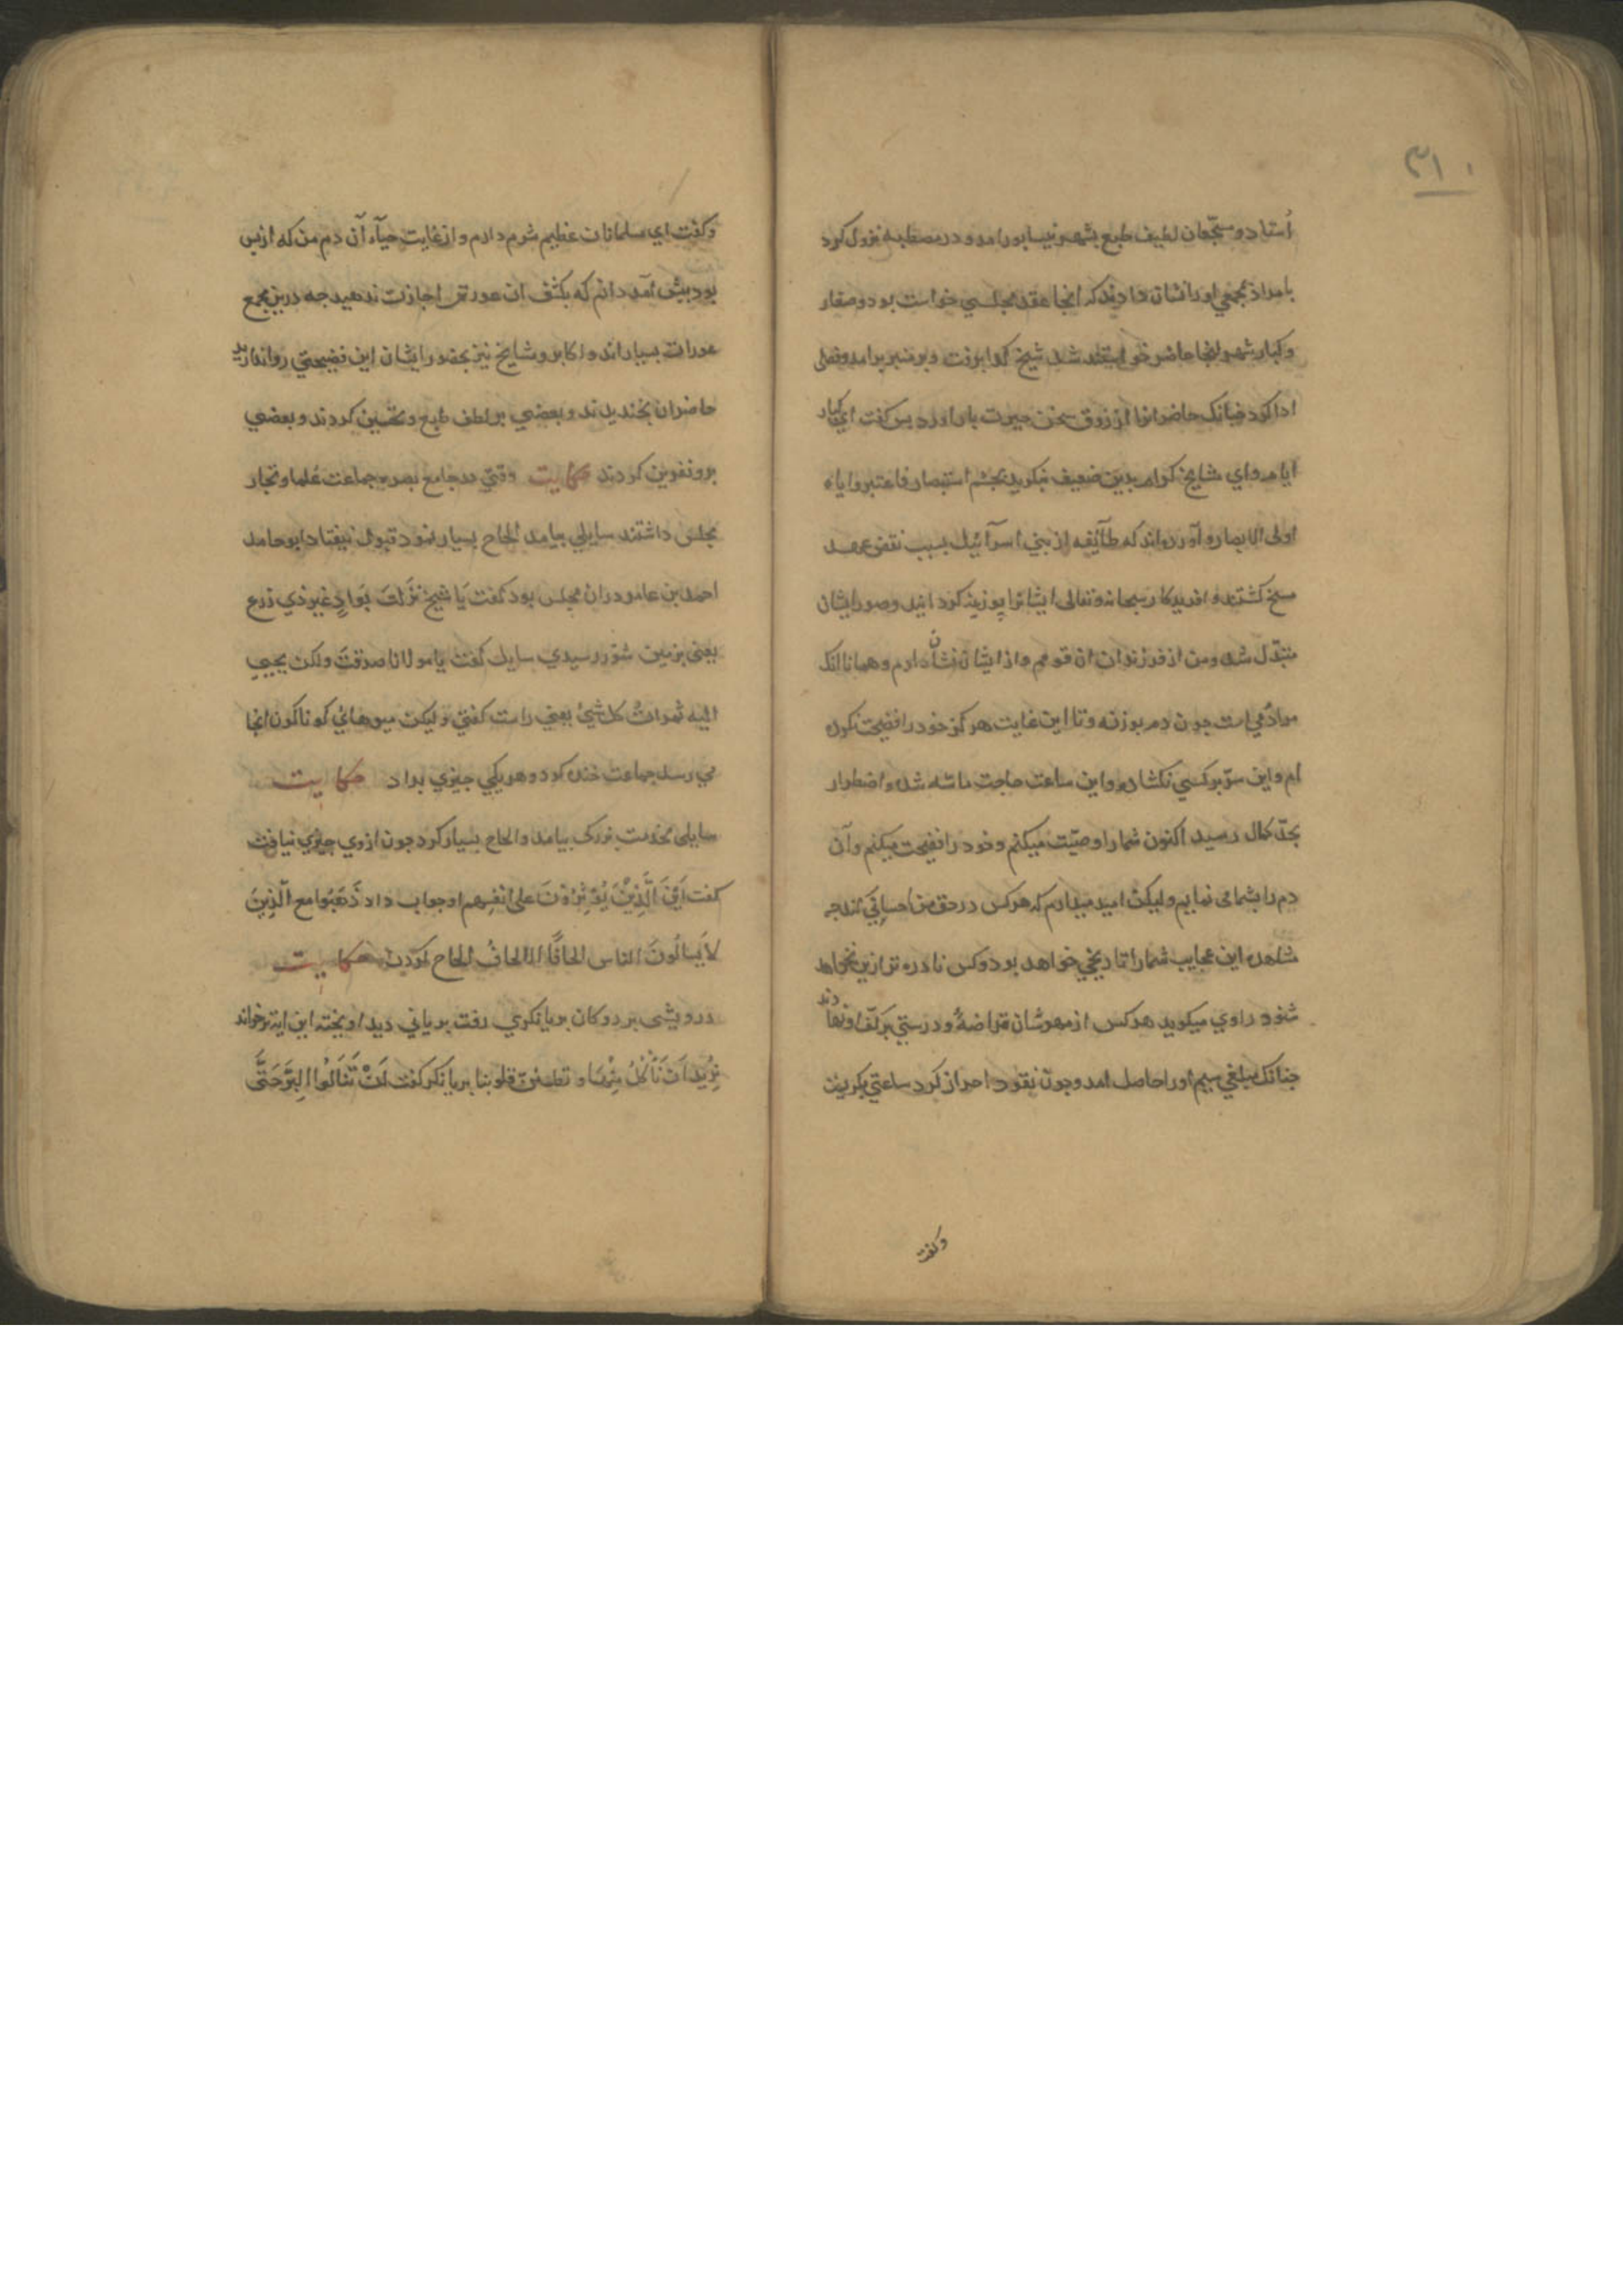 ۳۱۰
استاد و سجّعان لطیف طبع بشهر نیسابور امد و در مصطبه نزول کرد
بامداد بجمعی اورا نشان دادند که انجا عقد مجلسی خواست بود و صغار
و کبار شهر انجا حاضر خواستند شد شیخ کدا برفت و بر منبر برامد و فصلی
ادا کرد چنانک حاضرانرا از ذوق سخن حیرت بار اورد بس کفت ای کبار
ایام و ای مشایخ کرام بدین ضعیف نکرید بجشم استبصار فاعتبروا یا
اولی الابصار و آورده اند که طآئفه از بنی اسرآئیل بسبب نقض عهد
مسخ کشتند و افریدکار سبحانه و تعالی ایشانرا بوزینه کردانید و صور ایشان
متبدّل شد و من از فرزندان ان قومم و از ایشان نشان دارم و همانا انک
مرا دمی است جون دم بوزنه و تا این غایت هرکز خود را فضیحت نکرده
ام و این سرّ بر کسی نکشاده و این ساعت حاجت ماسّه شد و اضطرار
بحدّ کمال رسید اکنون شما را وصیّت میکنم و خود را فضیحت میکنم و آن
دم را بشما می نمایم و لیکن امید میدارم که هرکس در حق من احسانی کند جه
مشاهده این عجایب شما را تاریخی خواهد بود و کس نادره تر ازین نخواهد
شنود راوی میکوید هر کس از مهوشان قراضهٔ و درستی بر کف او نهادند
جنانک مبلغی سیم اورا حاصل امد و جون نقود احراز کرد ساعتی بکریست
وکفت
وکفت ای مسلمانان عظیم شرم دارم و از غایت حیآء آن دم من که از بس
بود بیش آمد دانم که بکشف ان عورتش اجازت ندهید جه درین مجمع
عورات بسیاراند و اکابر و مشایخ نیز بحضور ایشان این فضیحتی روا ندارید
حاضران بخندیدند و بعضی بر لطف طبع و تحسین کردند و بعضی
برو نفرین کردند حکایت وقتی در جامع بصره جماعت علما و تجار
مجلس داشتند سایلی بیامد الحاح بسیار نمود قبول نیفتاد ابو حامد
احمد بن عامر دران مجلس بود کفت یا شیخ نَزَلتَ بَوادٍ غیر ذی زرع
یعنی بزمین شور رسیدی سایل کفت یا مولانا صدقتَ ولکن یجبی
الیه ثمراتُ کل شیٔ یعنی راست کفتی و لیکن میوهائی کوناکون انجا
می رسد جماعت خنده کرد و هر یکی جیزی بداد حکایت
سایلی بخدمت بزرکی بیامد و الحاح بسیار کرد جون ازوی جیزی نیافت
کفت اَیْنَ الَّذِیْنَ یُؤثِرُوْنَ علی انفسهم او جواب داد ذَهَبُوا مع الَّذِینَ
لا یَسالُونَ الناس الحافًا الالحافُ الحاح کردن حکایت
درویشی بر دوکان بریانکری رفت بریانی دید اویخته این ایه برخواند
نُرِیْدُ اَنْ نَأْکُلَ مِنْهَا و تطمئنّ قلوبنا بریانکر کفت لَنْ تَنَالُوا البِرَّ حَتَّی